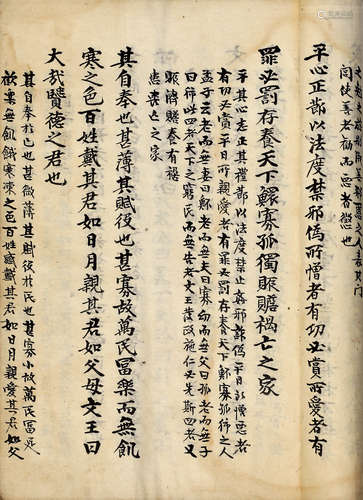 閭使善者勸而惡者懲也
平心正節以法度禁邪偽所憎者有功必賞所愛者有
罪必罰存養天下鰥寡孤獨賑贍禍亡之家
平其心志正其禮節以法度禁
有功必賞平日所親愛者有罪必罰存養天下鰥寡孤獨之人
孟子云老而無妻曰鰥老而無夫曰寡幼而無父曰孤老而無子
曰獨此四者天下之窮民而無告者文王發政施仁必先斯四者又
賑濟贍養有禍
患喪亡之家
其自奉也甚薄其賦役也甚寡故萬民富樂而無飢
寒之色百姓戴其君如日月親其君如父母文王曰
大哉賢德之君也
其自奉於己也甚微薄其賦役於民也甚寡小故萬民富足
歡樂無飢餓寒凍之色百姓戴其君如日月親愛其君如父